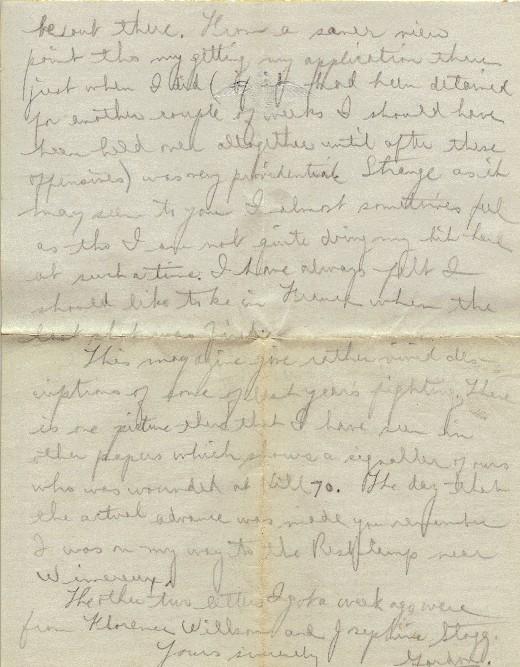 be out there. From a saner view
point tho my getting my application there
just when I did (if it had been detained
for another couple of weeks I should have
been held over altogether until after these
offensives) was very providential. Strange as it
may seem to you I almost sometimes feel
as tho I am not quite doing my bit here
at such a time. I have always felt I
should like to be in France when the
last shot was fired.
This magazine give rather vivid des-
criptions of some of last year's fighting. There
is one picture there that I have seen in
other papers which shows a signaller of ours
who was wounded at Hill 70. The day that
the actual advance was made you remember
I was on my way to the Rest Camp near
Wimereux.
The other two letters I got a week ago were
from Florence Willson and Josephine Stagg.
Yours sincerely
Gordon.